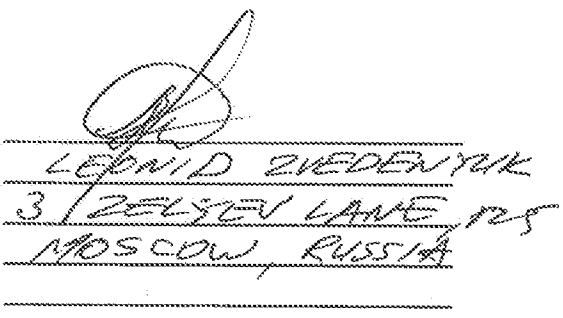 LEONID ZVEDENYUK
3 ZELYEV LANE,
MOSCOW, RUSSIA